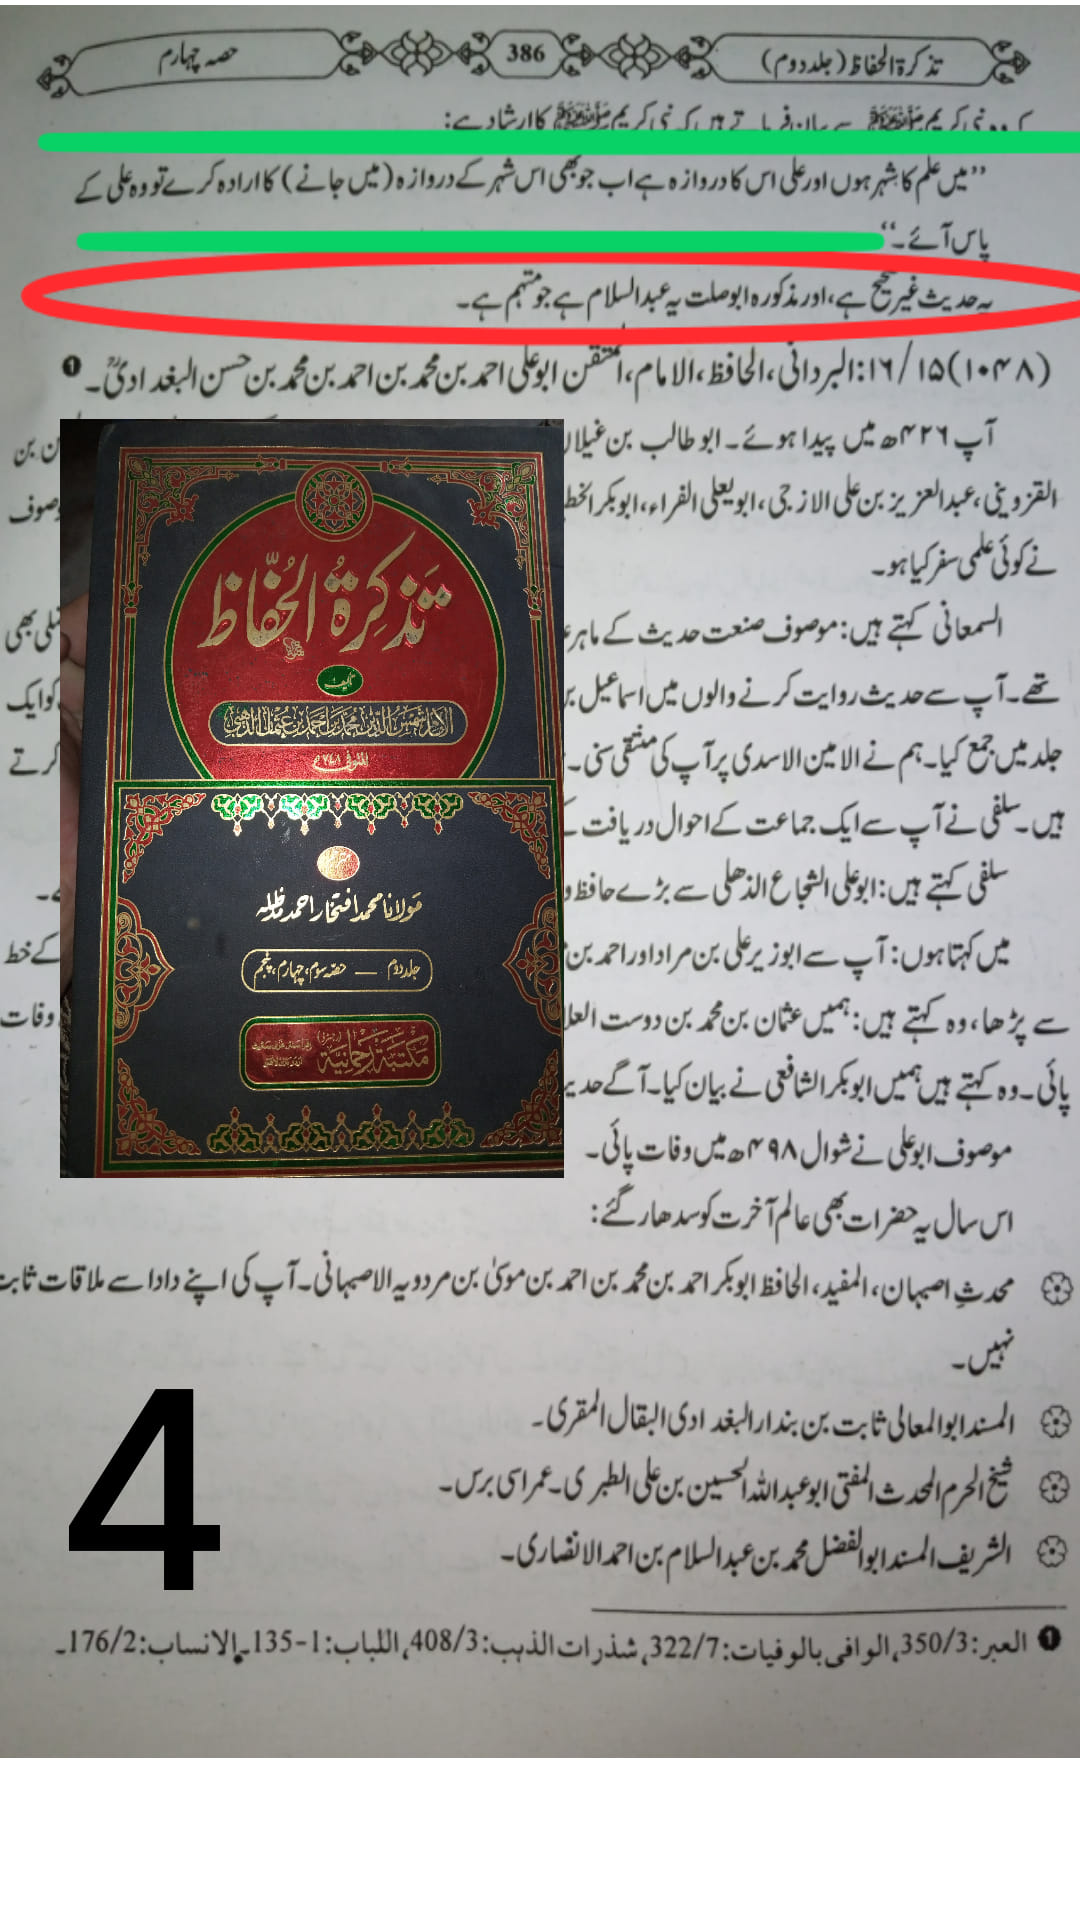 تذکرۃ الحفاظ (جلد دوم)
386
حصہ چہارم
نبی کریم ﷺ سے بیان فرماتے ہیں کہ نبی کریم ﷺ کا ارشاد ہے:
’’میں علم کا شہر ہوں اور علی اس کا دروازہ ہے اب جو بھی اس شہر کے دروازہ (میں جانے) کا ارادہ کرے تو وہ علی کے
پاس آئے۔‘‘
یہ حدیث غیر صحیح ہے، اور مذکورہ ابو صلت یہ عبدالسلام ہے جو متہم ہے۔
(۱۰۴۸) ۱۵/۱۶: البردانی، الحافظ، الامام، المتقن ابو علی احمد بن محمد بن احمد بن محمد بن حسن البغدادیؒ۔ ❶
آپ ۴۲۶ھ میں پیدا ہوئے۔ ابو طالب بن غیلان
بن
القزوینی، عبدالعزیز بن علی الازجی، ابو یعلی الفراء، ابوبکر الخط
موصوف
نے کوئی علمی سفر کیا ہو۔
السمعانی کہتے ہیں: موصوف صنعت حدیث کے ماہر
بھی
تھے۔ آپ سے حدیث روایت کرنے والوں میں اسماعیل
کو ایک
جلد میں جمع کیا۔ ہم نے الامین الاسدی پر آپ کی منتقی سنی۔
کرتے
ہیں۔ سلفی نے آپ سے ایک جماعت کے احوال دریافت
سلفی کہتے ہیں: ابو علی الشجاع الذھلی سے بڑے حافظ و
میں کہتا ہوں: آپ سے ابوزیر علی بن مراد اور احمد بن
کے خط
سے پڑھا، وہ کہتے ہیں: ہمیں عثمان بن محمد بن دوست العلا
وفات
پائی۔ وہ کہتے ہیں ہمیں ابوبکر الشافعی نے بیان کیا۔ آگے حدیث
موصوف ابو علی نے شوال ۴۹۸ھ میں وفات پائی۔
اس سال یہ حضرات بھی عالم آخرت کو سدھار گئے:
محدثِ اصبہان، المفید، الحافظ ابوبکر احمد بن محمد بن احمد بن موسیٰ بن مردویہ الاصبہانی۔ آپ کی اپنے دادا سے ملاقات ثابت
نہیں۔
المسند ابوالمعالی ثابت بن بندار البغدادی البقال المقری۔
شیخ الحرم المحدث المفتی ابو عبداللہ الحسین بن علی الطبری۔ عمر اسی برس۔
الشریف المسند ابوالفضل محمد بن عبدالسلام بن احمد الانصاری۔
❶ العبر: 350/3، الوافی بالوفیات: 322/7، شذرات الذہب: 408/3، اللباب: 1-135۔ الانساب: 176/2۔
تذکرۃ الحفاظ
تالیف
الامام شمس الدین محمد بن احمد بن عثمان الذہبی
مولانا محمد افتخار احمد مدظلہ
جلد دوم — حصہ سوم، چہارم، پنجم
مکتبہ رحمانیہ
4